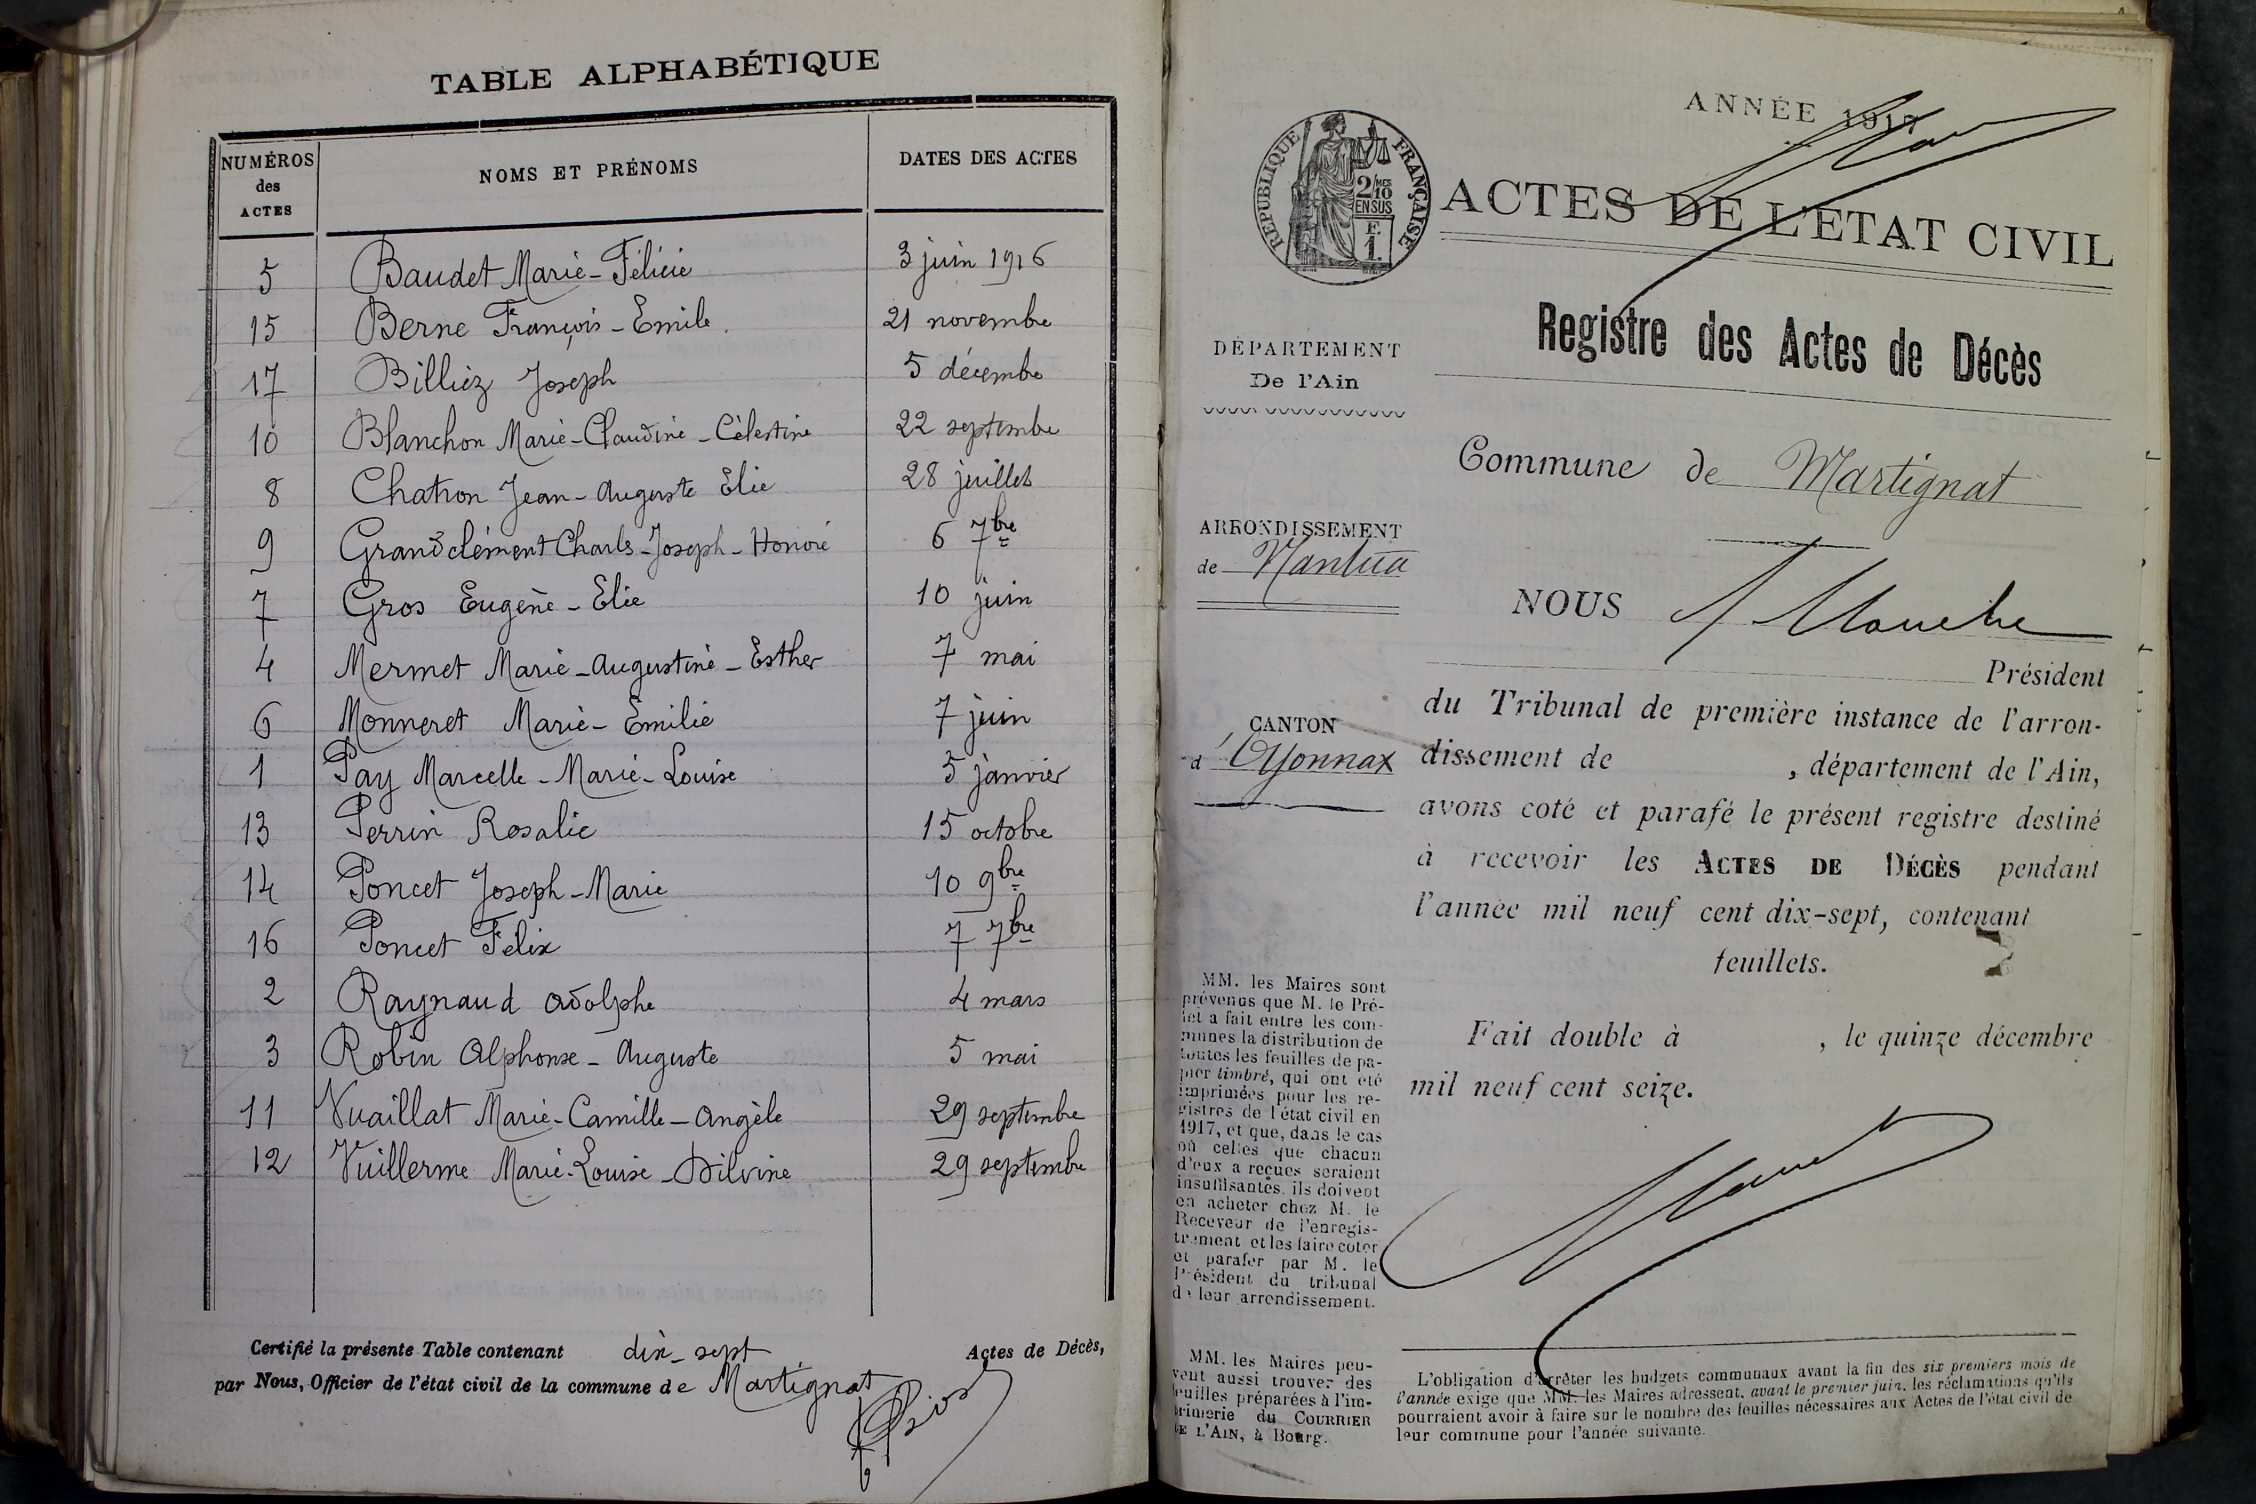 TABLE ALPHABÉTIQUE
NUMÉROS des ACTES NOMS ET PRÉNOMS DATES DES ACTES
5 Baudet Marie-Félicie 3 juin 1916
15 Berne François-Emile 21 novembre
17 Billiez Joseph 5 décembre
10 Blanchon Marie-Claudine-Célestine 22 septembre
8 Chatron Jean-Auguste Elie 28 juillet
9 Grandclément Charles-Joseph-Honoré 6 7bre
7 Gros Eugène-Elie 10 juin
4 Mermet Marie-Augustine-Esther 7 mai
6 Monneret Marie-Emilie 7 juin
1 Pay Marcelle-Marie-Louise 5 janvier
13 Perrin Rosalie 15 octobre
14 Poncet Joseph-Marie 10 9bre
16 Poncet Félix 7 7bre
2 Raynaud Adolphe 4 mars
3 Robin Alphonse-Auguste 5 mai
11 Vuaillat Marie-Camille-Angèle 29 septembre
12 Vuillerme Marie-Louise-Dilvine 29 septembre
Certifié la présente Table contenant dix-sept Actes de Décès,
par Nous, Officier de l'état civil de la commune de Martignat
ANNÉE 1917
RÉPUBLIQUE FRANÇAISE
2/10 MES
EN SUS
F.
1.
ACTES DE L'ÉTAT CIVIL
Registre des Actes de Décès
DÉPARTEMENT
De l'Ain
Commune de Martignat
ARRONDISSEMENT
de Nantua
NOUS
Président
CANTON
d'Oyonnax
du Tribunal de première instance de l'arron-
dissement de , département de l'Ain,
avons coté et parafé le présent registre destiné
à recevoir les ACTES DE DÉCÈS pendant
l'année mil neuf cent dix-sept, contenant
feuillets.
Fait double à , le quinze décembre
mil neuf cent seize.
MM. les Maires sont
prévenus que M. le Pré-
fet a fait entre les com-
munes la distribution de
toutes les feuilles de pa-
pier timbré, qui ont été
imprimées pour les re-
gistres de l'état civil en
1917, et que, dans le cas
où celles que chacun
d'eux a reçues seraient
insuffisantes, ils doivent
en acheter chez M. le
Receveur de l'enregis-
trement et les faire coter
et parafer par M. le
Président du tribunal
de leur arrondissement.
MM. les Maires peu-
vent aussi trouver des
feuilles préparées à l'im-
primerie du COURRIER
DE L'AIN, à Bourg.
L'obligation d'arrêter les budgets communaux avant la fin des six premiers mois de
l'année exige que MM. les Maires adressent, avant le premier juin, les réclamations qu'ils
pourraient avoir à faire sur le nombre des feuilles nécessaires aux Actes de l'état civil de
leur commune pour l'année suivante.